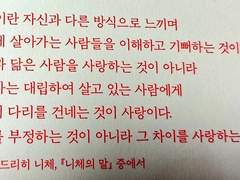 이란 자신과 다른 방식으로 느끼며
살아가는 사람들을 이해하고 기뻐하는 것이
닮은 사람을 사랑하는 것이 아니라
는 대립하여 살고 있는 사람에게
다리를 건네는 것이 사랑이다.
부정하는 것이 아니라 그 차이를 사랑하는
드리히 니체, 『니체의 말』 중에서